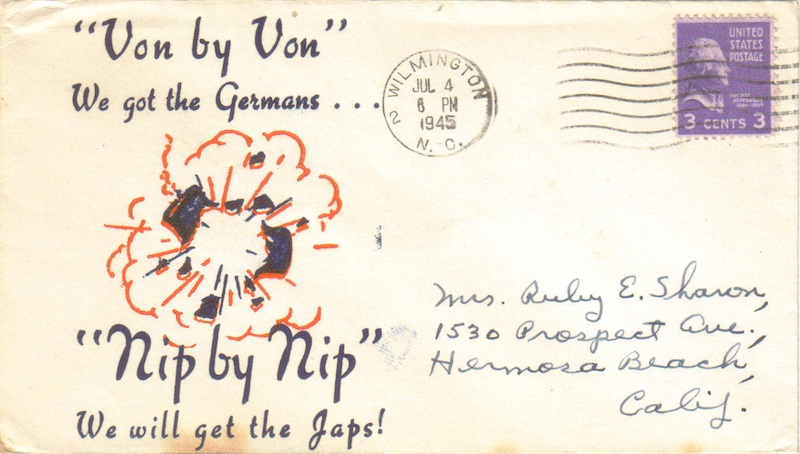 "Von by Von"
We got the Germans . . .
"Nip by Nip"
We will get the Japs!
WILMINGTON
JUL 4
6 PM
1945
N. C.
2
UNITED
STATES
POSTAGE
3 CENTS 3
Mrs. Ruby E. Sharon,
1530 Prospect Ave.,
Hermosa Beach,
Calif.